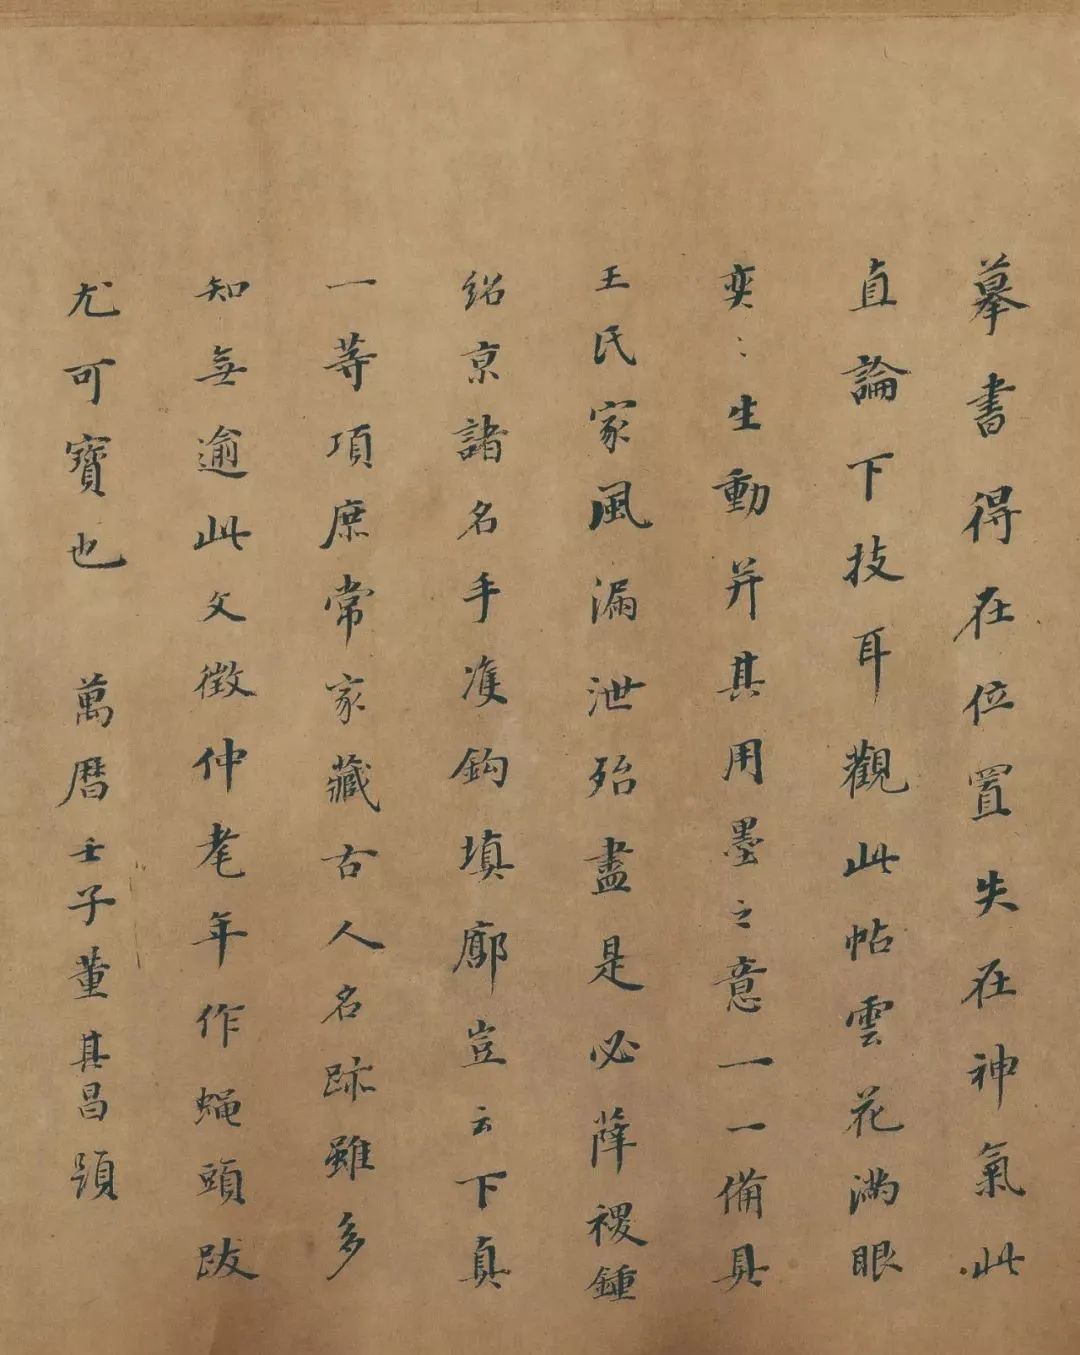 摹書得在位置失在神氣此
直論下技耳觀此帖雲花滿眼
奕〻生動并其用墨之意一一備具
王氏家風漏泄殆盡是必薛稷鍾
紹京諸名手雙鈎填廓豈云下真
一等項庶常家藏古人名跡雖多
知無逾此文徵仲耄年作蠅頭跋
尤可寶也 萬曆壬子董其昌題